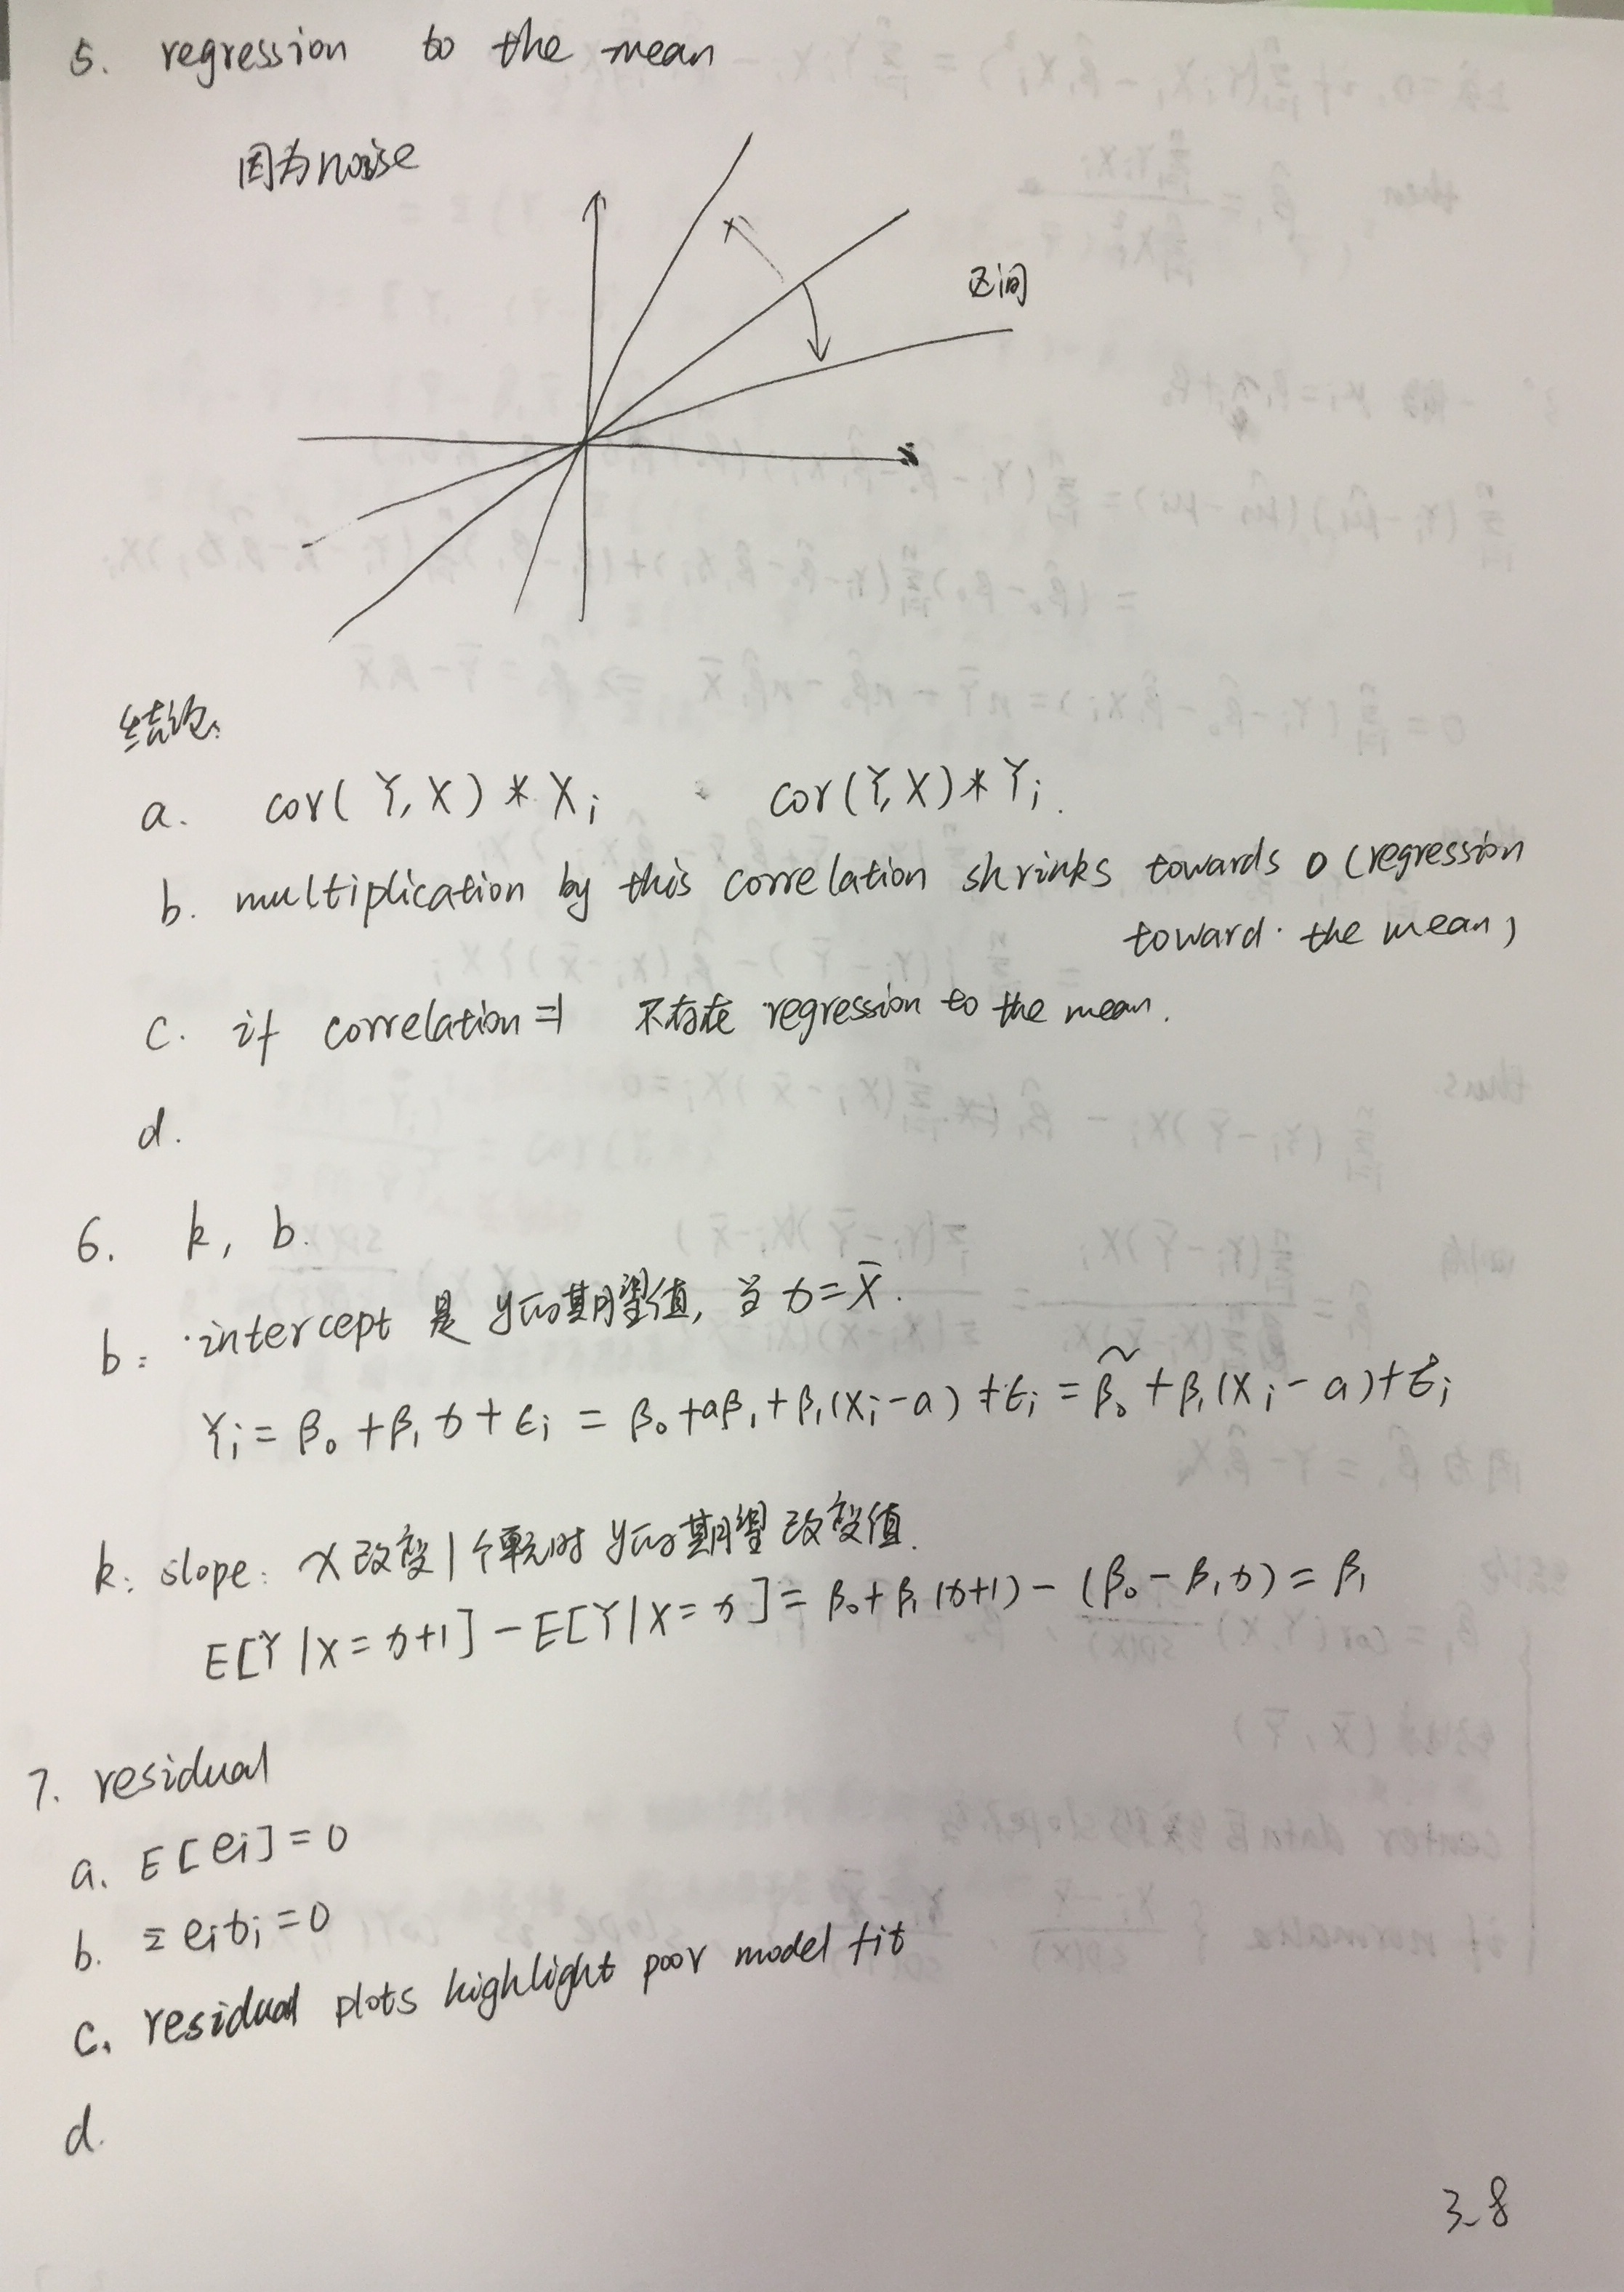 5. regression to the mean
因为noise
区间
结论:
a. cor(Y,X)*Xi cor(Y,X)*Yi.
b. multiplication by this correlation shrinks towards 0 (regression
toward. the mean)
c. if correlation=1 不存在 regression to the mean.
d.
6. k, b.
b: intercept 是 y的期望值, 当 x=X̄.
Yi = β₀ + β₁x + εi = β₀+aβ₁+β₁(Xi-a)+εi = β̃₀ + β₁(Xi-a)+εi
k: slope: X改变1个单元时 y的期望改变值.
E[Y|X=x+1] - E[Y|X=x] = β₀+β₁(x+1) - (β₀-β₁x) = β₁
7. residual
a. E[ei]=0
b. Σ eixi=0
c. residual plots highlight poor model fit
d.
3_8